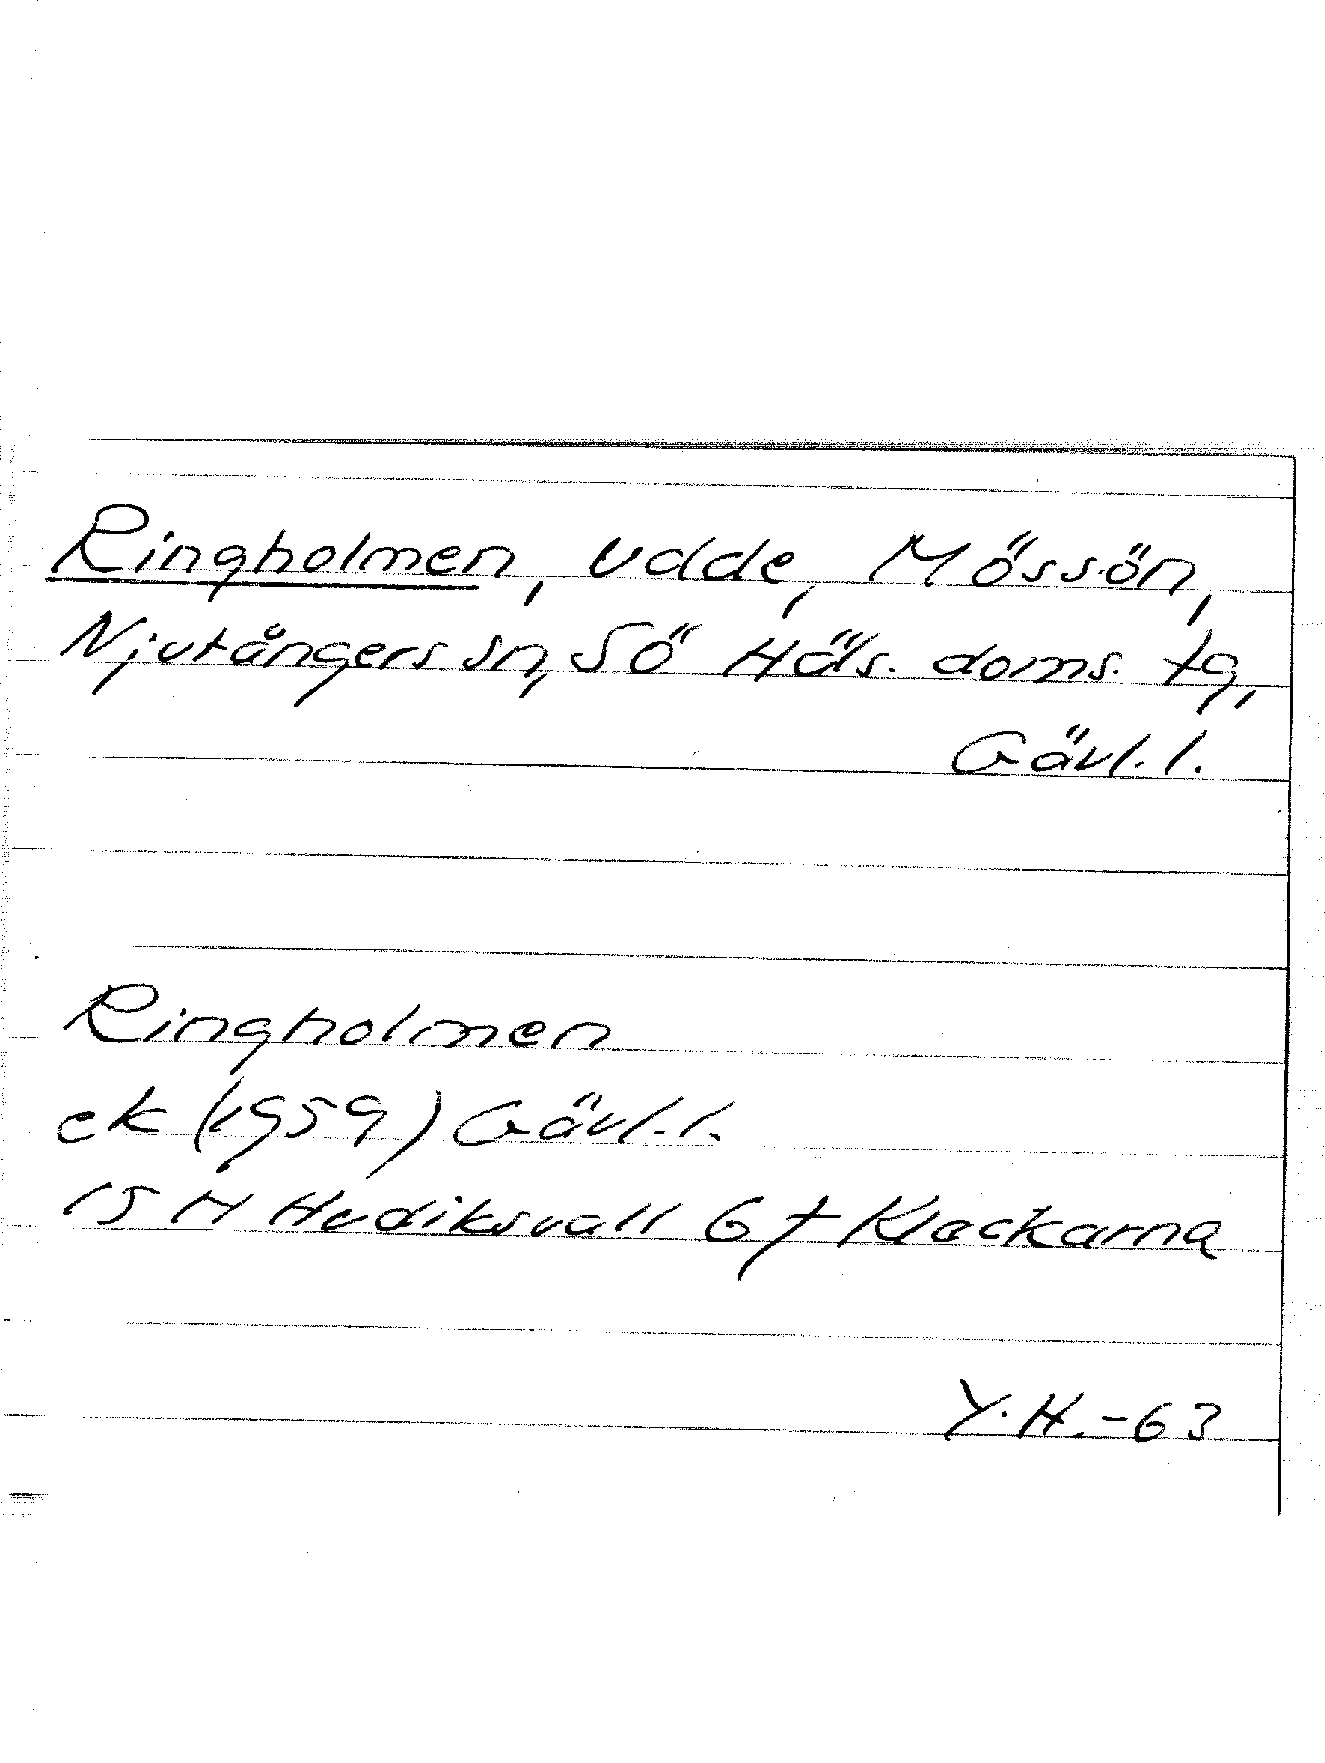 Ringholmen, udde, Mössön,
Njutångers sn, Sö Häls. doms. tg,
Gävl. l.
Ringholmen
ek (1959) Gävl. l.
15 H Hudiksvall 6 f Klackarna
Y. H. -63